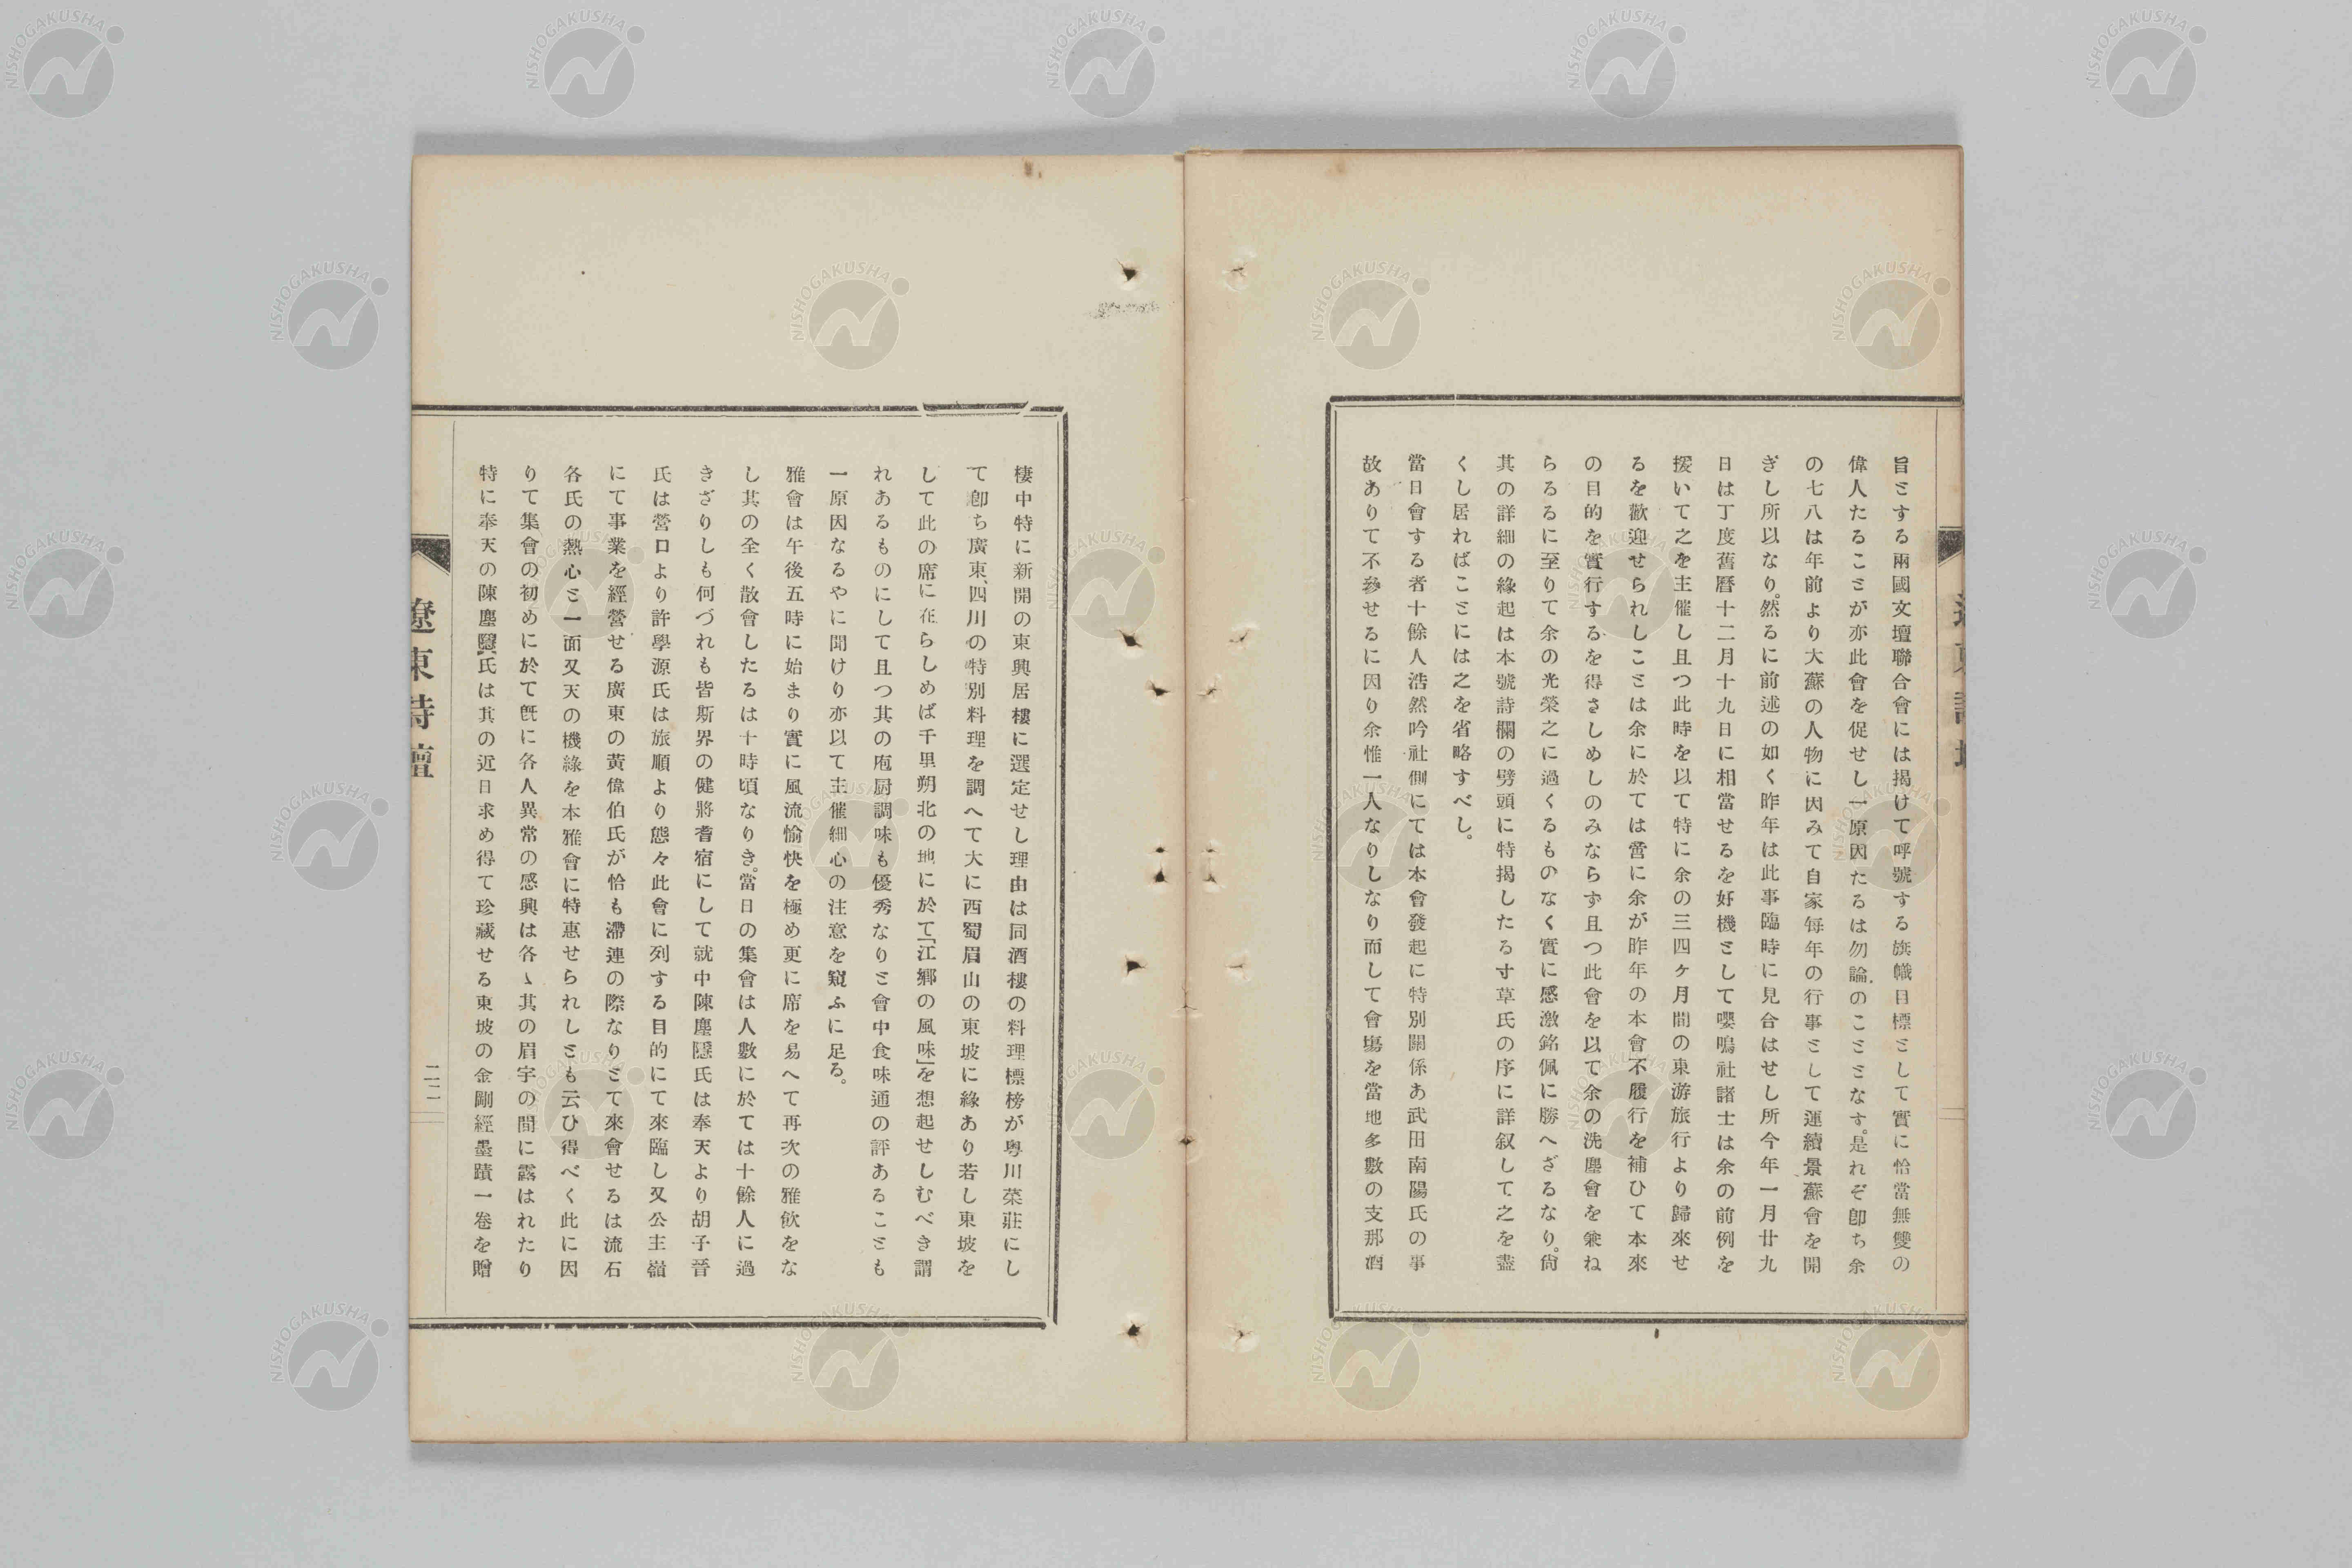 旨とする兩國文壇聯合會には揭けて呼號する旗幟目標として實に恰當無雙の
偉人たることが亦此會を促せし一原因たるは勿論のこととなす。是れぞ卽ち余
の七八は年前より大蘇の人物に因みて自家每年の行事として連續景蘇會を開
ぎし所以なり。然るに前述の如く昨年は此事臨時に見合はせし所今年一月廿九
日は丁度舊曆十二月十九日に相當せるを好機として嚶鳴社諸士は余の前例を
援いて之を主催し且つ此時を以て特に余の三四ヶ月間の東游旅行より歸來せ
るを歡迎せられしことは余に於ては啻に余が昨年の本會不履行を補ひて本來
の目的を實行するを得さしめしのみならず且つ此會を以て余の洗塵會を兼ね
らるるに至りて余の光榮之に過くるものなく實に感激銘佩に勝へざるなり。尙
其の詳細の緣起は本號詩欄の劈頭に特揭したる寸草氏の序に詳叙して之を盡
くし居ればことには之を省略すべし。
當日會する者十餘人浩然吟社側にては本會發起に特別關係あ武田南陽氏の事
故ありて不參せるに因り余惟一人なりしなり而して會塲を當地多數の支那酒
棲中特に新開の東興居樓に選定せし理由は同酒樓の料理標榜が粤川菜莊にし
て卽ち廣東、四川の特別料理を調へて大に西蜀眉山の東坡に緣あり若し東坡を
して此の席に在らしめば千里朔北の地に於て「江鄕の風味」を想起せしむべき謂
れあるものにして且つ其の庖厨調味も優秀なりと會中食味通の評あることも
一原因なるやに聞けり亦以て主催細心の注意を窺ふに足る。
雅會は午後五時に始まり實に風流愉快を極め更に席を易へて再次の雅飮をな
し其の全く散會したるは十時頃なりき。當日の集會は人數に於ては十餘人に過
きざりしも何づれも皆斯界の健將耆宿にして就中陳塵隱氏は奉天より胡子晉
氏は營口より許學源氏は旅順より態々此會に列する目的にて來臨し又公主嶺
にて事業を經營せる廣東の黃偉伯氏が恰も滯連の際なりとて來會せるは流石
各氏の熱心と一面又天の機緣を本雅會に特惠せられしとも云ひ得べく此に因
りて集會の初めに於て旣に各人異常の感興は各〻其の眉宇の間に露はれたり
特に奉天の陳塵隱氏は其の近日求め得て珍藏せる東坡の金剛經墨蹟一卷を贈
遼東詩壇
二二